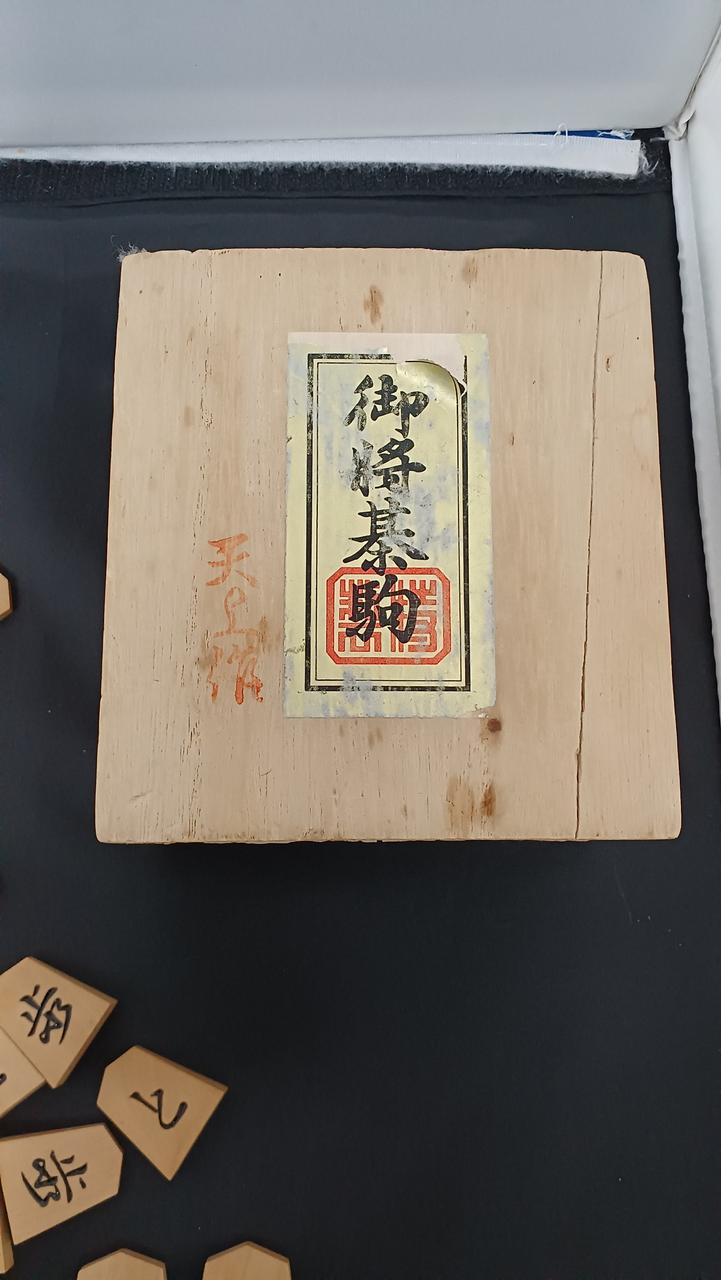 御将棊駒
天上作
歩
歩